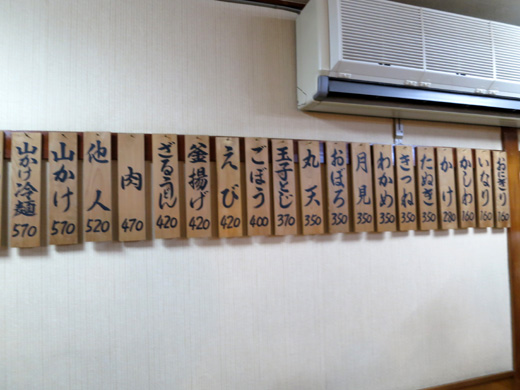 おにぎり 160
いなり 160
かしわ 160
かけ 280
たぬき 350
きつね 350
わかめ 350
月見 350
おぼろ 350
丸天 350
玉子とじ 370
ごぼう 400
えび 420
釜揚げ 420
ざるうどん 420
肉 470
他人 520
山かけ 570
山かけ冷麺 570